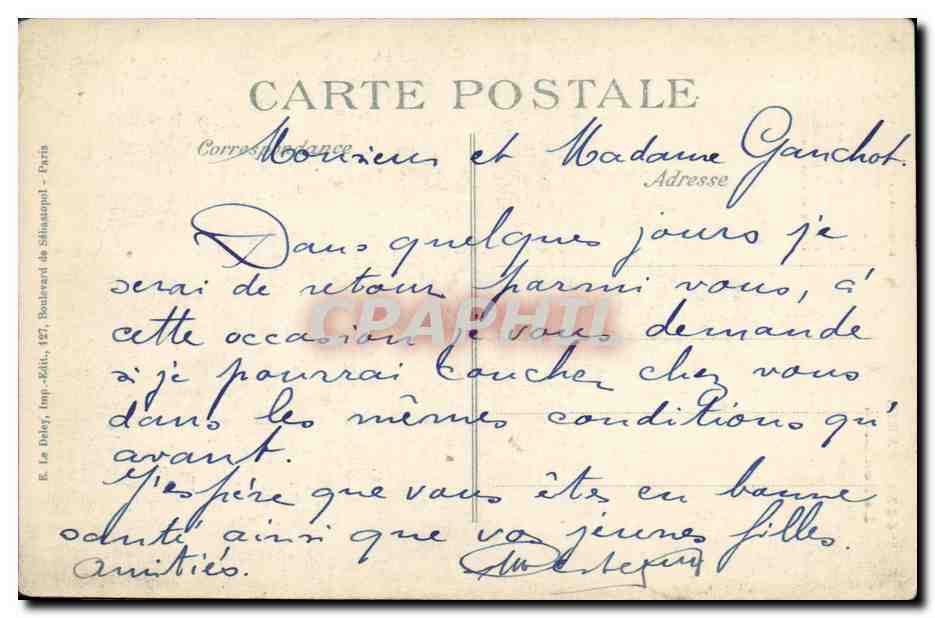 CARTE POSTALE
Correspondance
Monsieur et Madame Ganchot.
Adresse
Dans quelques jours je
serai de retour parmi vous, à
cette occasion je vous demande
si je pourrai coucher chez vous
dans les mêmes conditions qu'
avant.
J'espère que vous êtes en bonne
santé ainsi que vos jeunes filles.
Amitiés.
E. Le Deley, Imp.-Edit., 127, Boulevard de Sébastopol - Paris
CPAPHIL